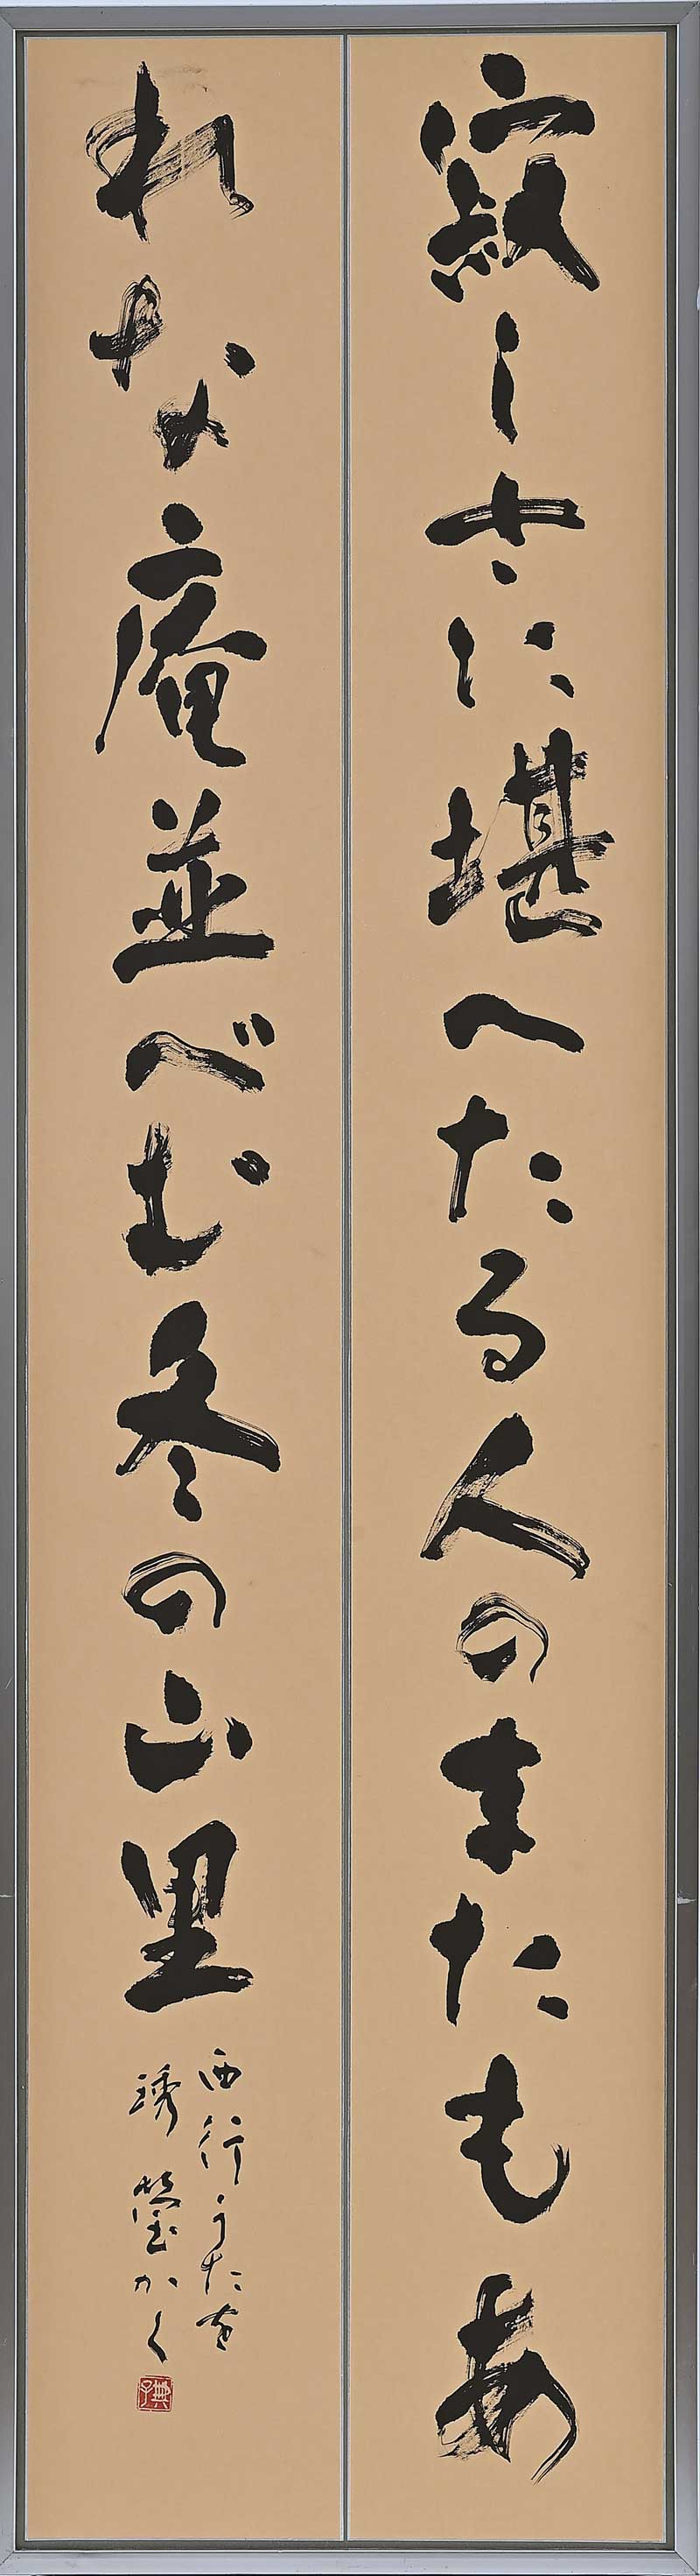 寂しさに堪へたる人のまたもあ
れな庵並べむ冬の山里
西行うたを
琇瑩かく
典子